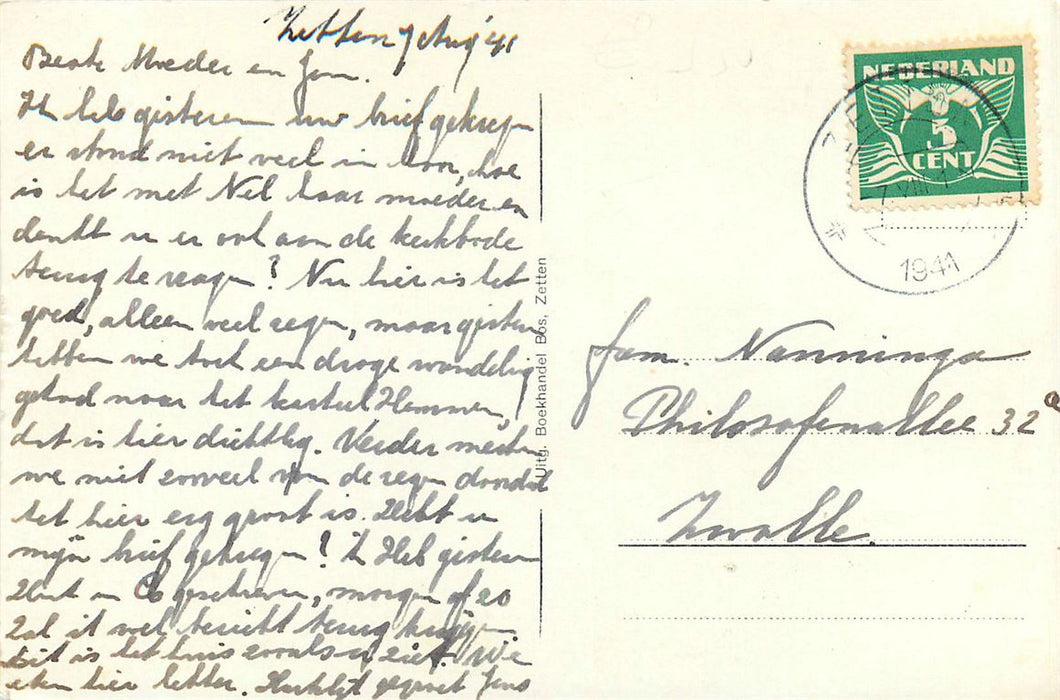 Zetten 7 Aug '41
Beste Moeder en Jan.
Ik heb gisteren uw brief gekregen
er stond niet veel in hoor, hoe
is het met Nel haar moeder en
denkt u er ook aan de kerkbode
terug te vragen? Nu hier is het
goed, alleen veel regen, maar gisteren
hebben we toch een droge wandeling
gehad naar het kasteel Hemmen,
dat is hier dichtbij. Verder merken
we niet zooveel van de regen doordat
het hier erg groot is. Hebt u
mijn brief gekregen? Ik Heb gisteren
en Co geschreven, morgen of zo
zal ik wel bericht terug krijgen
Dit is het huis zooals u ziet. We
eten hier lekker. Hartelijk gegroet Jans
Uitg. Boekhandel Bos, Zetten
NEDERLAND
5
CENT
VIII
1941
fam. Nanninga
Philosofenallee 32a
Zwolle.